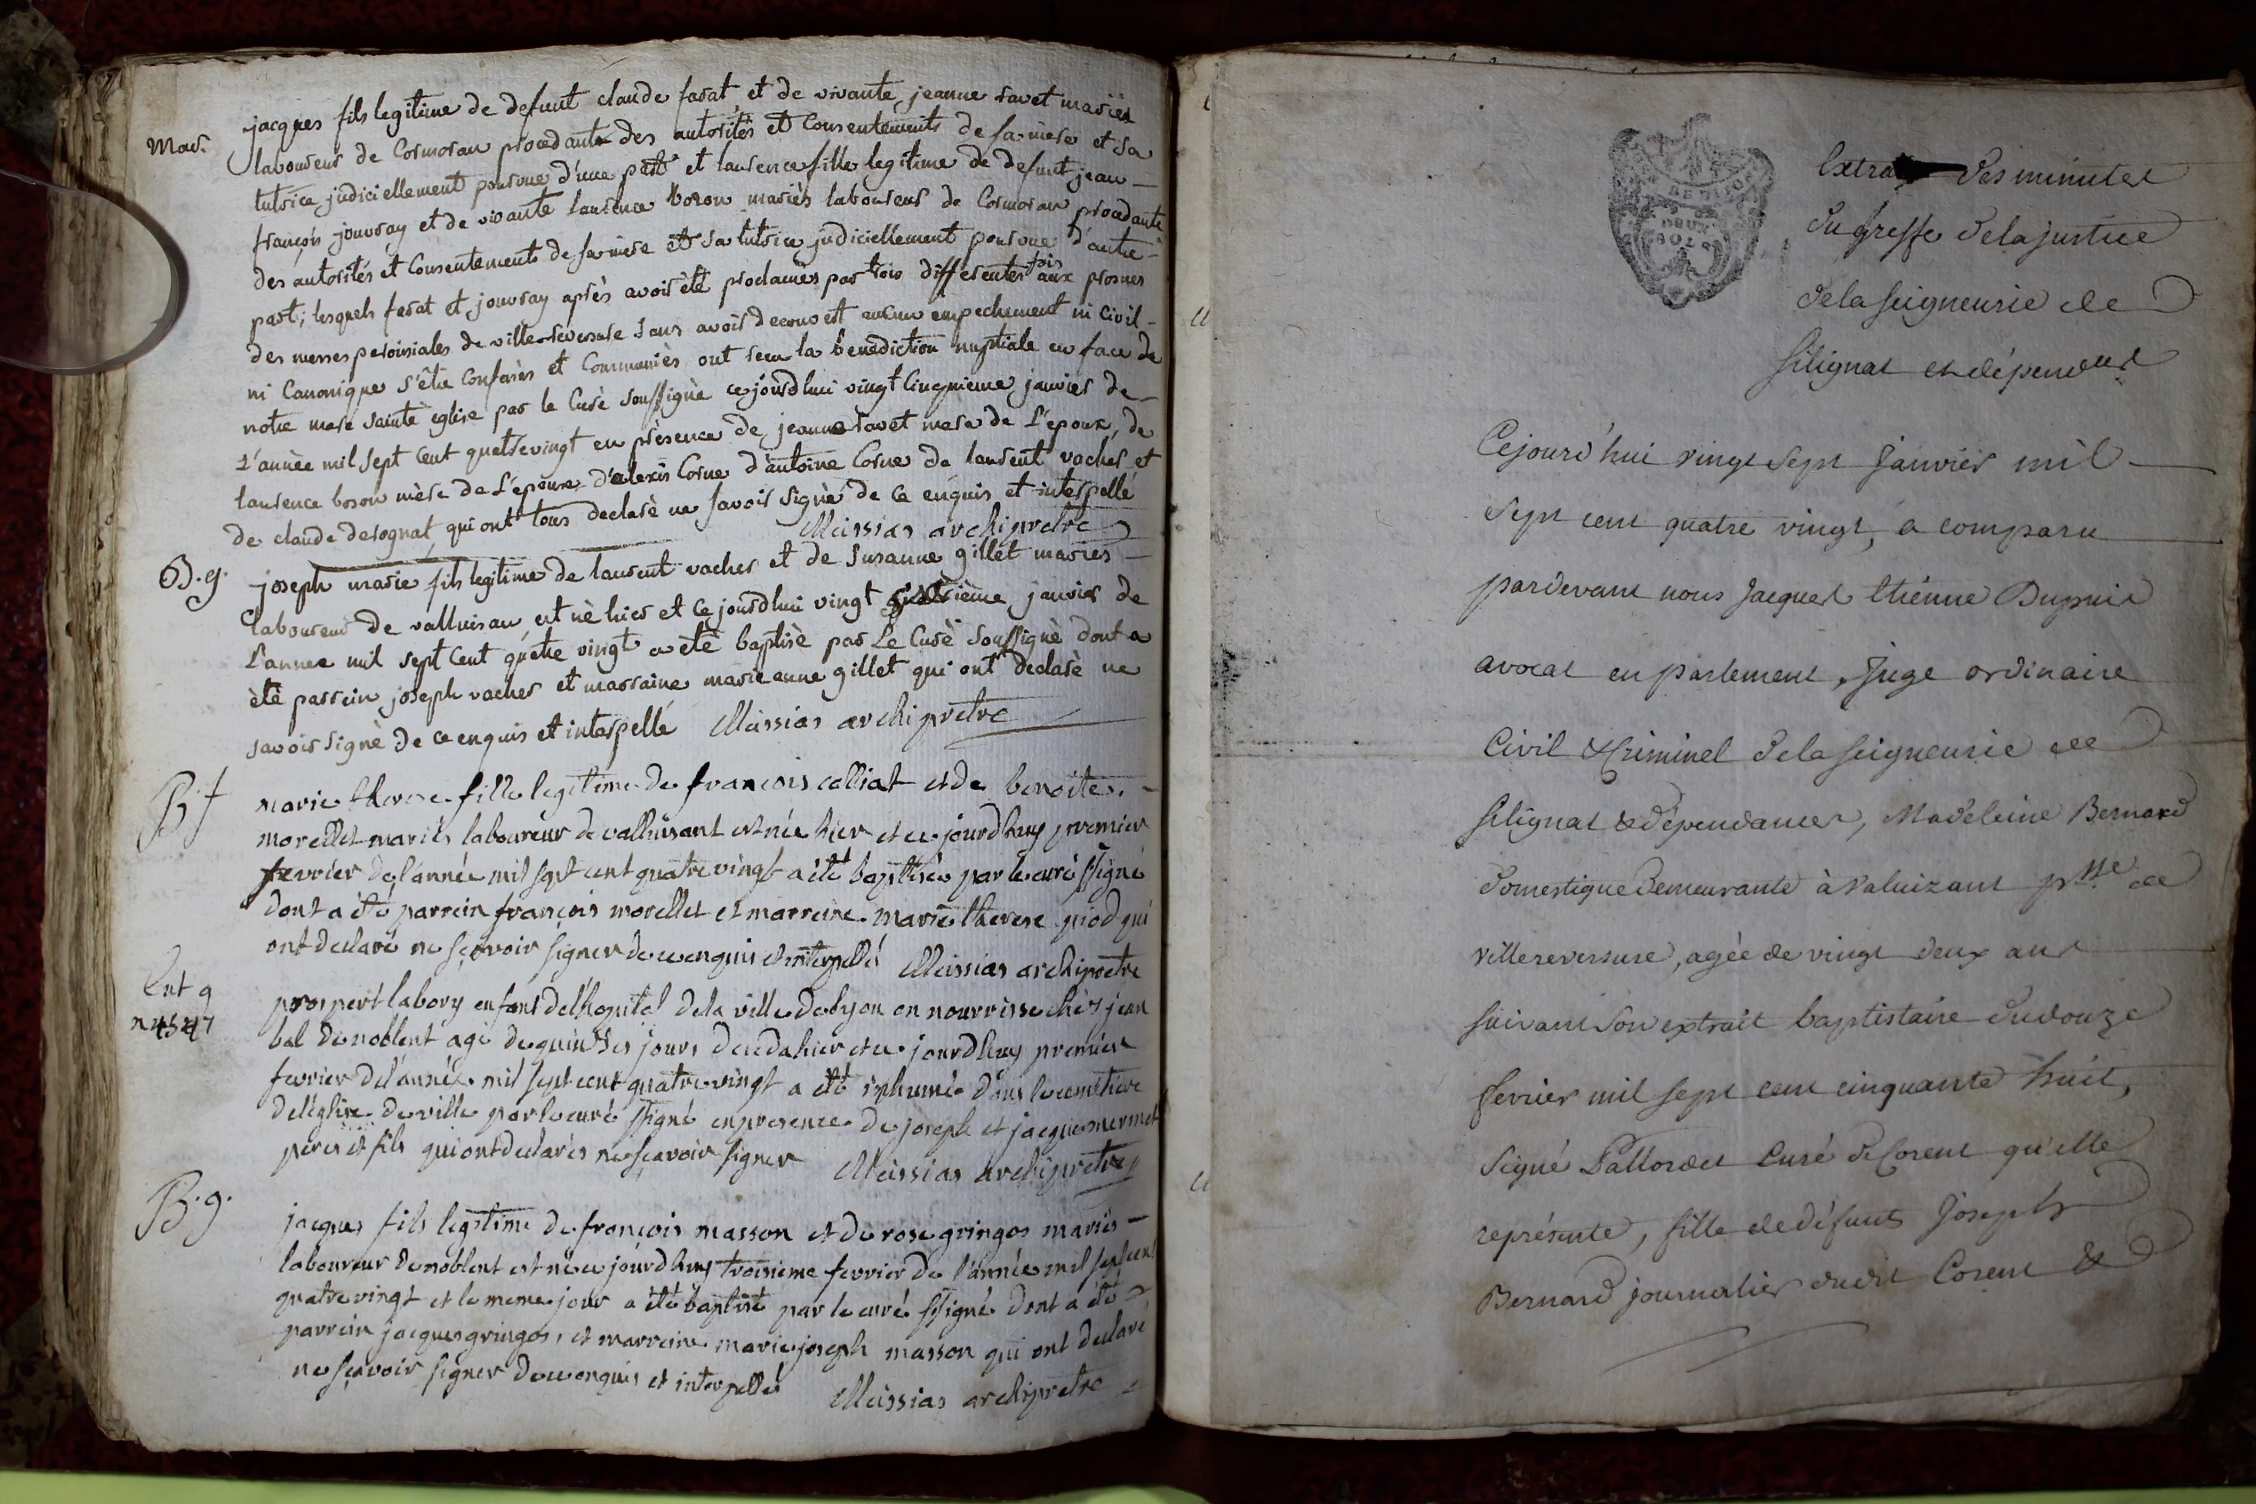 Mar.
jacques fils legitime de defunt claude farat et de vivante jeanne ravet mariés
laboureur de Cormoran procedant des autorités et Consentements de sa mere et sa
tutrice judiciellement pourvue d'une part et laurence fille legitime de defunt jean
françois jouvray et de vivante laurence boron mariés laboureur de Cormoran procedante
des autorités et Consentements de sa mere et sa tutrice judiciellement pourvue d'autre
part; lesquels farat et jouvray après avoir été proclamés par trois differentes fois aux prosnes
des messes paroissiales de ville reversure sans avoir decouvert aucun empechement ni Civil
ni Canonique s'être Confessés et Communiés ont recu la benediction nuptiale en face de
notre mere sainte eglise par le Curé soussigné cejourdhui vingt Cinquieme janvier de
L'année mil sept Cent quatrevingt en présence de jeanne ravet mere de L'epoux, de
laurence boron mère de L'epouse d'alexis Corne d'antoine Corne de laurent vacher et
de claude derognat qui ont tous declaré ne savoir signé de Ce enquis et interpellé
Meissias archiprétre
B. g.
joseph marie fils legitime de laurent vacher et de Susanne gillet mariés
laboureur de valluisan est né hier et Cejourdhui vingt janvier de
L'année mil sept Cent quatre vingt a été baptisé par Le Curé soussigné dont a
été parrein joseph vacher et marraine marie anne gillet qui ont declaré ne
savoir signé de ce enquis et interpellé Meissias archipretre
B. f
marie therese fille legitime de françois calliat et de benoite
morellet mariés laboureur de valluisant est née hier et ce jourdhuy premier
fevrier de l'année mil sept cent quatre vingt a été baptisée par le curé ssigné
dont a été parrein françois morellet et marreine marie therese piod qui
ont declaré ne sçavoir signer de ce enquis et interpellé Meissias archipretre
Ent g
n 4547
prospert labory enfant delhopital dela ville de lyon en nourrisse chés jean
bal de noblent agé de quinze jours decedahier et ce jourdhuy premier
fevrier del'année mil sept cent quatrevingt a été inhumé dans le cemetiere
de l'église de ville par le curé ssigné en presence de joseph et jacque mermet
peres et fils qui ont declarés ne sçavoir signer Meissias archipretre
B. g.
jacques fils legitime de françois masson et de rose gringos mariés
laboureur de noblent est né ce jourdhuy troisieme fevrier de l'année mil sept cent
quatre vingt et le meme jour a été baptisé par le curé ssigné dont a été
parrein jacques gringos, et marreine marie joseph masson qui ont declaré
ne sçavoir signer de ce enquis et interpellés Meissias archipretre
DEUX
SOLS
Extrait des minutes
du greffe de la justice
de la seigneurie de
Silignat et dépendces
Cejourd'hui vingt sept Janvier mil
sept cent quatre vingt, a comparu
pardevant nous Jacques Etienne Dupuis
avocat en parlement, Juge ordinaire
Civil & Criminel de la seigneurie de
Silignat & dépendances, Madeleine Bernard
domestique demeurante à Valuizant psse de
villereversure, agée de vingt deux ans
suivant son extrait baptistaire du douze
fevrier mil sept cent cinquante huit,
signé Pallordet Curé de Corent qu'elle
représente, fille de défunts Joseph
Bernard journalier dudit Corent &